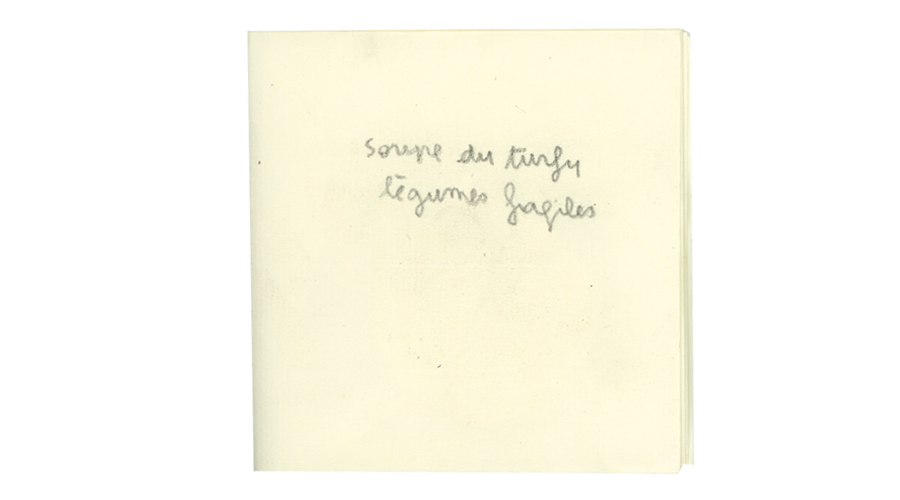 soupe du turfu
légumes fragiles